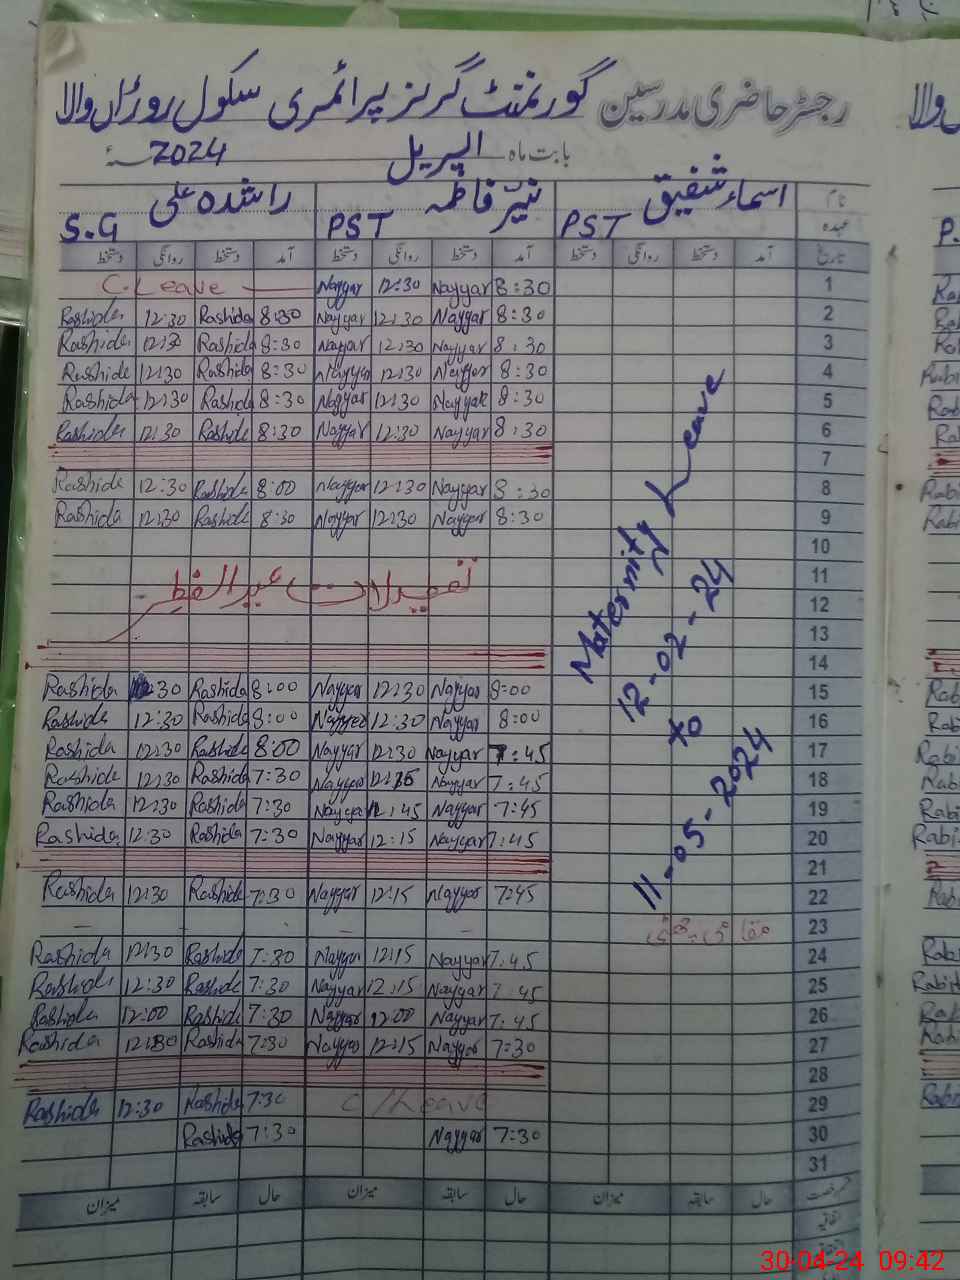 رجسٹر حاضری مدرسین گورنمنٹ گرلز پرائمری سکول روڑاں والا
بابت ماہ اپریل 2024ء
نام اسماء شفیق نیّر فاطمہ راشدہ علی
عہدہ PST PST S.G
تاریخ آمد دستخط روانگی دستخط آمد دستخط روانگی دستخط آمد دستخط روانگی دستخط
C.Leave Nayyar 12:30 Nayyar 8:30 1
Rashida 12:30 Rashida 8:30 Nayyar 12:30 Nayyar 8:30 2
Rashida 12:30 Rashida 8:30 Nayyar 12:30 Nayyar 8:30 3
Rashida 12:30 Rashida 8:30 Nayyar 12:30 Nayyar 8:30 4
Rashida 12:30 Rashida 8:30 Nayyar 12:30 Nayyar 8:30 5
Rashida 12:30 Rashida 8:30 Nayyar 12:30 Nayyar 8:30 6
7
Rashida 12:30 Rashida 8:00 Nayyar 12:30 Nayyar 8:30 8
Rashida 12:30 Rashida 8:30 Nayyar 12:30 Nayyar 8:30 9
10
تعطیلات عید الفطر 11
12
13
14
Rashida 12:30 Rashida 8:00 Nayyar 12:30 Nayyar 8:00 15
Rashida 12:30 Rashida 8:00 Nayyar 12:30 Nayyar 8:00 16
Rashida 12:30 Rashida 8:00 Nayyar 12:30 Nayyar 7:45 17
Rashida 12:30 Rashida 7:30 Nayyar Nayyar 7:45 18
Rashida 12:30 Rashida 7:30 Nayyar 12:45 Nayyar 7:45 19
Rashida 12:30 Rashida 7:30 Nayyar 12:15 Nayyar 7:45 20
21
Rashida 12:30 Rashida 7:30 Nayyar 12:15 Nayyar 7:45 22
مقامی چھٹی 23
Rashida 12:30 Rashida 7:30 Nayyar 12:15 Nayyar 7:45 24
Rashida 12:30 Rashida 7:30 Nayyar 12:15 Nayyar 7:45 25
Rashida 12:00 Rashida 7:30 Nayyar 12:00 Nayyar 7:45 26
Rashida 12:30 Rashida 7:30 Nayyar 12:15 Nayyar 7:30 27
28
Rashida 12:30 Rashida 7:30 C/Leave 29
Rashida 7:30 Nayyar 7:30 30
31
Maternity Leave
12-02-24
to
11-05-2024
رخصت حال سابقہ میزان حال سابقہ میزان حال سابقہ میزان
اتفاقیہ
30-04-24 09:42